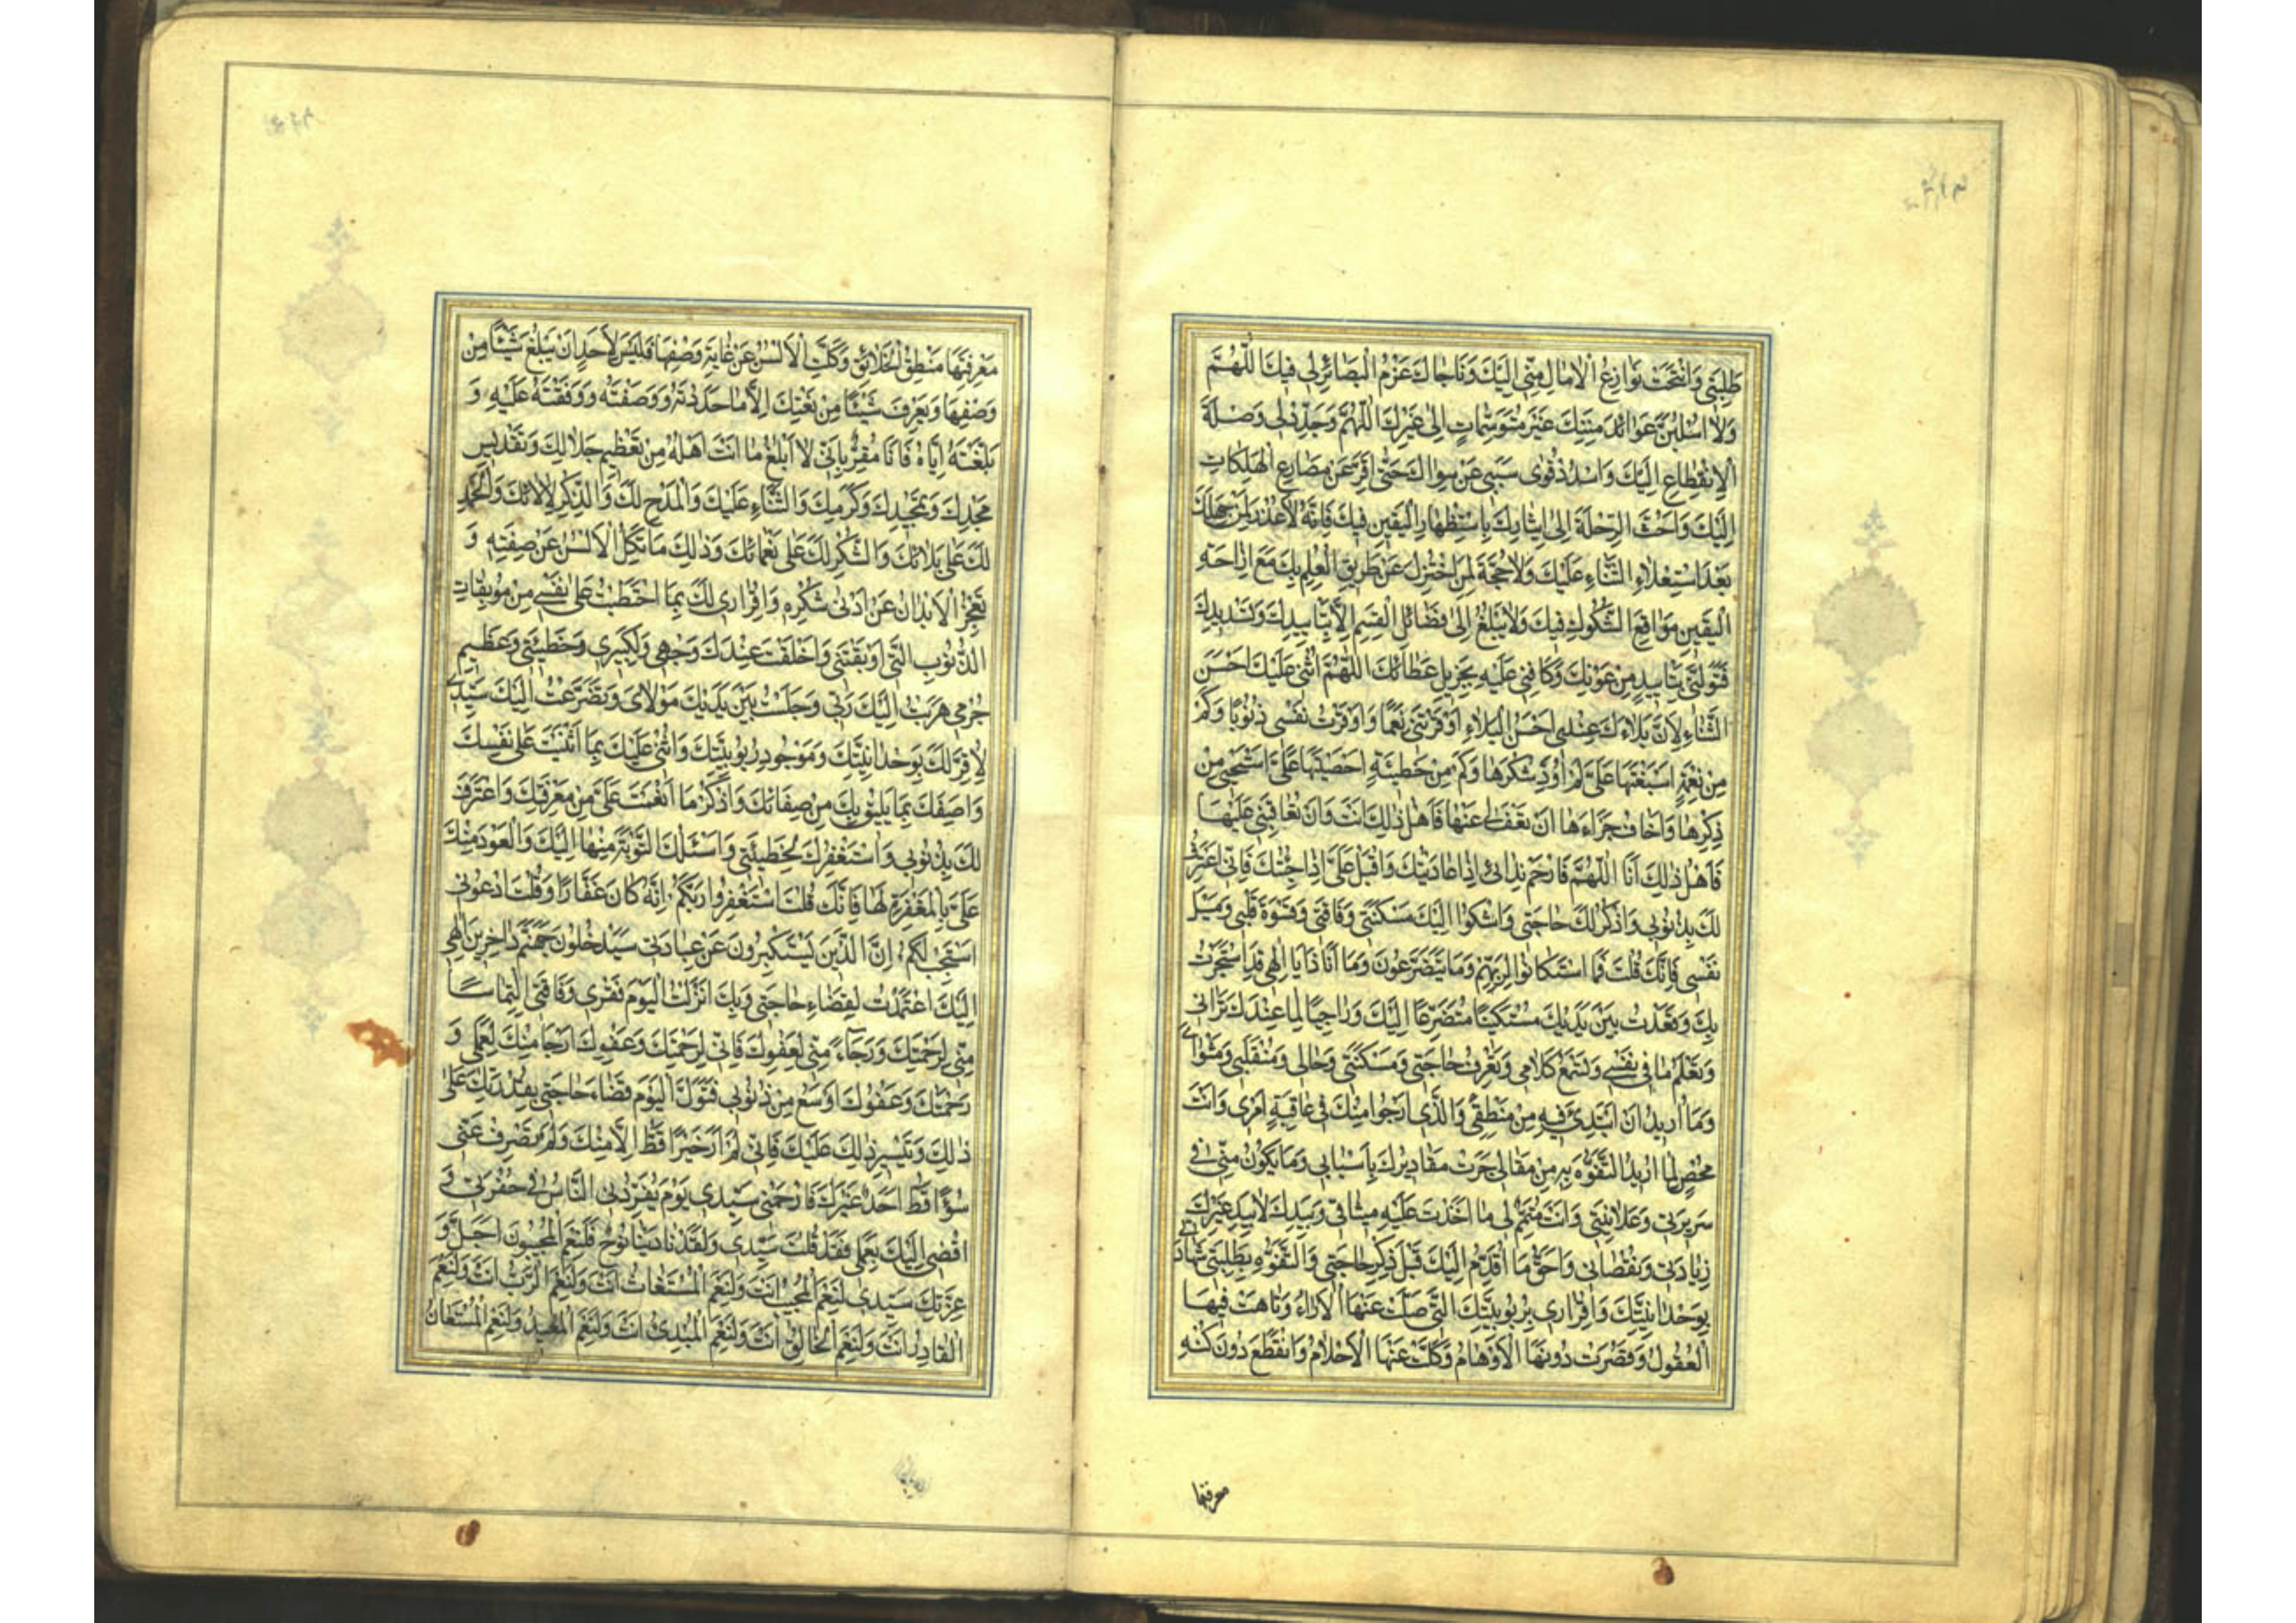 طَلِبَتِي وَانْتَجَتْ نَوَازِعُ الْاٰمَالِ مِنِّي اِلَيْكَ وَنَاجَاكَ عَزْمُ الْبَصَائِرِ لِي فِيكَ اَللّٰهُمَّ
وَلَا اَسْلُبَنَّ عَوَائِدَ مِنَنِكَ غَيْرَ مُتَوَسِّمَاتٍ اِلٰى غَيْرِكَ اَللّٰهُمَّ وَجَدِّدْ لِي وَصْلَةَ
الْاِنْقِطَاعِ اِلَيْكَ وَاسْدُدْ قُوٰى سَبَبِي عَنْ سِوَاكَ حَتّٰى اَفِرَّ عَنْ مَصَارِعِ الْهَلَكَاتِ
اِلَيْكَ وَاَحُثَّ الرِّحْلَةَ اِلٰى اِيثَارِكَ بِاسْتِظْهَارِ الْيَقِينِ فِيكَ فَاِنَّهُ لَا عُذْرَ لِمَنْ جَهِلَكَ
بَعْدَ اسْتِعْلَاءِ الثَّنَاءِ عَلَيْكَ وَلَا حُجَّةَ لِمَنِ اخْتُزِلَ عَنْ طَرِيقِ الْعِلْمِ بِكَ مَعَ اِزَاحَةِ
الْيَقِينِ مَوَاقِعَ الشُّكُوكِ فِيكَ وَلَا يُبْلَغُ اِلٰى فَضَائِلِ الْقِسَمِ اِلَّا بِتَأْيِيدِكَ وَتَسْدِيدِكَ
فَتَوَلَّنِي بِتَأْيِيدٍ مِنْ عَوْنِكَ وَكَافِنِي عَلَيْهِ بِجَزِيلِ عَطَائِكَ اَللّٰهُمَّ اُثْنِي عَلَيْكَ اَحْسَنَ
الثَّنَاءِ لِاَنَّ بَلَاءَكَ عِنْدِي اَحْسَنُ الْبَلَاءِ اَوْقَرْتَنِي نِعَمًا وَاَوْقَرْتُ نَفْسِي ذُنُوبًا وَكَمْ
مِنْ نِعْمَةٍ اَسْبَغْتَهَا عَلَيَّ لَمْ اُؤَدِّ شُكْرَهَا وَكَمْ مِنْ خَطِيئَةٍ اَحْصَيْتَهَا عَلَيَّ اَسْتَحْيِي مِنْ
ذِكْرِهَا وَاَخَافُ جَزَاءَهَا اِنْ تَعْفُ لِي عَنْهَا فَاَهْلُ ذٰلِكَ اَنْتَ وَاِنْ تُعَاقِبْنِي عَلَيْهَا
فَاَهْلُ ذٰلِكَ اَنَا اَللّٰهُمَّ فَارْحَمْ نِدَائِي اِذَا نَادَيْتُكَ وَاَقْبِلْ عَلَيَّ اِذَا جِئْتُكَ فَاِنِّي اَعْتَرِفُ
لَكَ بِذُنُوبِي وَاَذْكُرُ لَكَ حَاجَتِي وَاَشْكُوا اِلَيْكَ مَسْكَنَتِي وَفَاقَتِي وَقَسْوَةَ قَلْبِي وَمَيْلَ
نَفْسِي فَاِنَّكَ قُلْتَ فَمَا اسْتَكَانُوا لِرَبِّهِمْ وَمَا يَتَضَرَّعُونَ وَهَا اَنَا ذَا يَا اِلٰهِي قَدِ اسْتَجَرْتُ
بِكَ وَقَعَدْتُ بَيْنَ يَدَيْكَ مُسْتَكِينًا مُتَضَرِّعًا اِلَيْكَ وَرَاجِيًا لِمَا عِنْدَكَ تَرَانِي
وَتَعْلَمُ مَا فِي نَفْسِي وَتَسْمَعُ كَلَامِي وَتَعْرِفُ حَاجَتِي وَمَسْكَنَتِي وَحَالِي وَمُنْقَلَبِي وَمَثْوَايَ
وَمَا اُرِيدُ اَنْ اَبْتَدِئَ فِيهِ مِنْ مَنْطِقِي وَالَّذِي اَرْجُوا مِنْكَ فِي عَاقِبَةِ اَمْرِي وَاَنْتَ
مُحْصٍ لِمَا اُرِيدُ التَّفَوُّهَ بِهِ مِنْ مَقَالِي جَرَتْ مَقَادِيرُكَ بِاَسْبَابِي وَمَا يَكُونُ مِنِّي فِي
سَرِيرَتِي وَعَلَانِيَتِي وَاَنْتَ مُتَمِّمٌ لِي مَا اَخَذْتَ عَلَيْهِ مِيثَاقِي وَبِيَدِكَ لَا بِيَدِ غَيْرِكَ
زِيَادَتِي وَنُقْصَانِي وَاَحَقُّ مَا اُقَدِّمُ اِلَيْكَ قَبْلَ ذِكْرِ حَاجَتِي وَالتَّفَوُّهِ بِطَلِبَتِي شَهَادَتِي
بِوَحْدَانِيَّتِكَ وَاِقْرَارِي بِرُبُوبِيَّتِكَ الَّتِي ضَلَّتْ عَنْهَا الْاٰرَاءُ وَتَاهَتْ فِيهَا
الْعُقُولُ وَقَصُرَتْ دُونَهَا الْاَوْهَامُ وَكَلَّتْ عَنْهَا الْاَحْلَامُ وَانْقَطَعَ دُونَ كُنْهِ
معرفتها
مَعْرِفَتِهَا مَنْطِقُ الْخَلَائِقِ وَكَلَّتِ الْاَلْسُنُ عَنْ غَايَةِ وَصْفِهَا فَلَيْسَ لِاَحَدٍ اَنْ يَبْلُغَ شَيْئًا مِنْ
وَصْفِهَا وَيَعْرِفَ شَيْئًا مِنْ نَعْتِكَ اِلَّا مَا حَدَّدْتَهُ وَوَصَفْتَهُ وَوَقَفْتَهُ عَلَيْهِ وَ
بَلَّغْتَهُ اِيَّاهُ فَاَنَا مُقِرٌّ بِاَنِّي لَا اَبْلُغُ مَا اَنْتَ اَهْلُهُ مِنْ تَعْظِيمِ جَلَالِكَ وَتَقْدِيسِ
مَجْدِكَ وَتَمْجِيدِكَ وَكَرَمِكَ وَالثَّنَاءِ عَلَيْكَ وَالْمَدْحِ لَكَ وَالذِّكْرِ لِاٰلَائِكَ وَالْحَمْدِ
لَكَ عَلٰى بَلَائِكَ وَالشُّكْرِ لَكَ عَلٰى نَعْمَائِكَ وَذٰلِكَ مَا تَكِلُّ الْاَلْسُنُ عَنْ صِفَتِهِ وَ
تَعْجِزُ الْاَبْدَانُ عَنْ اَدْنٰى شُكْرِهِ وَاِقْرَارِي لَكَ بِمَا احْتَطَبْتُ عَلٰى نَفْسِي مِنْ مُوبِقَاتِ
الذُّنُوبِ الَّتِي اَوْبَقَتْنِي وَاَخْلَقَتْ عِنْدَكَ وَجْهِي وَلِكَبِيرِ خَطِيئَتِي وَعَظِيمِ
جُرْمِي هَرَبْتُ اِلَيْكَ رَبِّي وَجَلَسْتُ بَيْنَ يَدَيْكَ مَوْلَايَ وَتَضَرَّعْتُ اِلَيْكَ سَيِّدِي
لِاُقِرَّ لَكَ بِوَحْدَانِيَّتِكَ وَبِوُجُودِ رُبُوبِيَّتِكَ وَاُثْنِيَ عَلَيْكَ بِمَا اَثْنَيْتَ عَلٰى نَفْسِكَ
وَاَصِفَكَ بِمَا يَلِيقُ بِكَ مِنْ صِفَاتِكَ وَاَذْكُرَ مَا اَنْعَمْتَ عَلَيَّ مِنْ مَعْرِفَتِكَ وَاَعْتَرِفَ
لَكَ بِذُنُوبِي وَاَسْتَغْفِرَكَ لِخَطِيئَتِي وَاَسْئَلَكَ التَّوْبَةَ مِنْهَا اِلَيْكَ وَالْعَوْدَ مِنْكَ
عَلَيَّ بِالْمَغْفِرَةِ لَهَا فَاِنَّكَ قُلْتَ اسْتَغْفِرُوا رَبَّكُمْ اِنَّهُ كَانَ غَفَّارًا وَقُلْتَ ادْعُونِي
اَسْتَجِبْ لَكُمْ اِنَّ الَّذِينَ يَسْتَكْبِرُونَ عَنْ عِبَادَتِي سَيَدْخُلُونَ جَهَنَّمَ دَاخِرِينَ اِلٰهِي
اِلَيْكَ اعْتَمَدْتُ لِقَضَاءِ حَاجَتِي وَبِكَ اَنْزَلْتُ الْيَوْمَ فَقْرِي وَفَاقَتِي الْتِمَاسًا
مِنِّي لِرَحْمَتِكَ وَرَجَاءً مِنِّي لِعَفْوِكَ فَاِنِّي لِرَحْمَتِكَ وَعَفْوِكَ اَرْجَا مِنْكَ لِعَمَلِي وَ
رَحْمَتُكَ وَعَفْوُكَ اَوْسَعُ مِنْ ذُنُوبِي فَتَوَلَّ الْيَوْمَ قَضَاءَ حَاجَتِي بِقُدْرَتِكَ عَلٰى
ذٰلِكَ وَتَيْسِيرِ ذٰلِكَ عَلَيْكَ فَاِنِّي لَمْ اَرَ خَيْرًا قَطُّ اِلَّا مِنْكَ وَلَمْ يَصْرِفْ عَنِّي
سُوْءًا قَطُّ اَحَدٌ غَيْرُكَ فَارْحَمْنِي سَيِّدِي يَوْمَ يُفْرِدُنِي النَّاسُ فِي حُفْرَتِي وَ
اُفْضِي اِلَيْكَ بِعَمَلِي فَقَدْ قُلْتَ سَيِّدِي وَلَقَدْ نَادَيْنَا نُوحٌ فَلَنِعْمَ الْمُجِيبُونَ اَجَلْ وَ
عِزَّتِكَ سَيِّدِي لَنِعْمَ الْمُجِيبُ اَنْتَ وَلَنِعْمَ الْمُسْتَغَاثُ اَنْتَ وَلَنِعْمَ الرَّبُّ اَنْتَ وَلَنِعْمَ
الْقَادِرُ اَنْتَ وَلَنِعْمَ الْخَالِقُ اَنْتَ وَلَنِعْمَ الْمُبْدِئُ اَنْتَ وَلَنِعْمَ الْمُعِيدُ وَلَنِعْمَ الْمُسْتَعَانُ